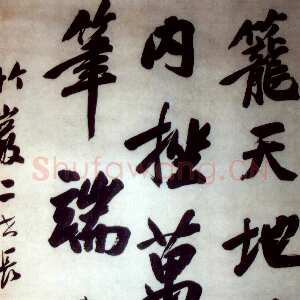 籠天地
内挫萬
筆端
竹嚴二長
Shufawang.CN